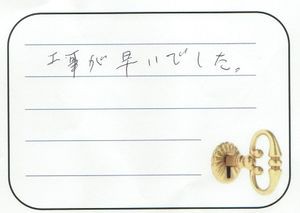 工事が早いでした。